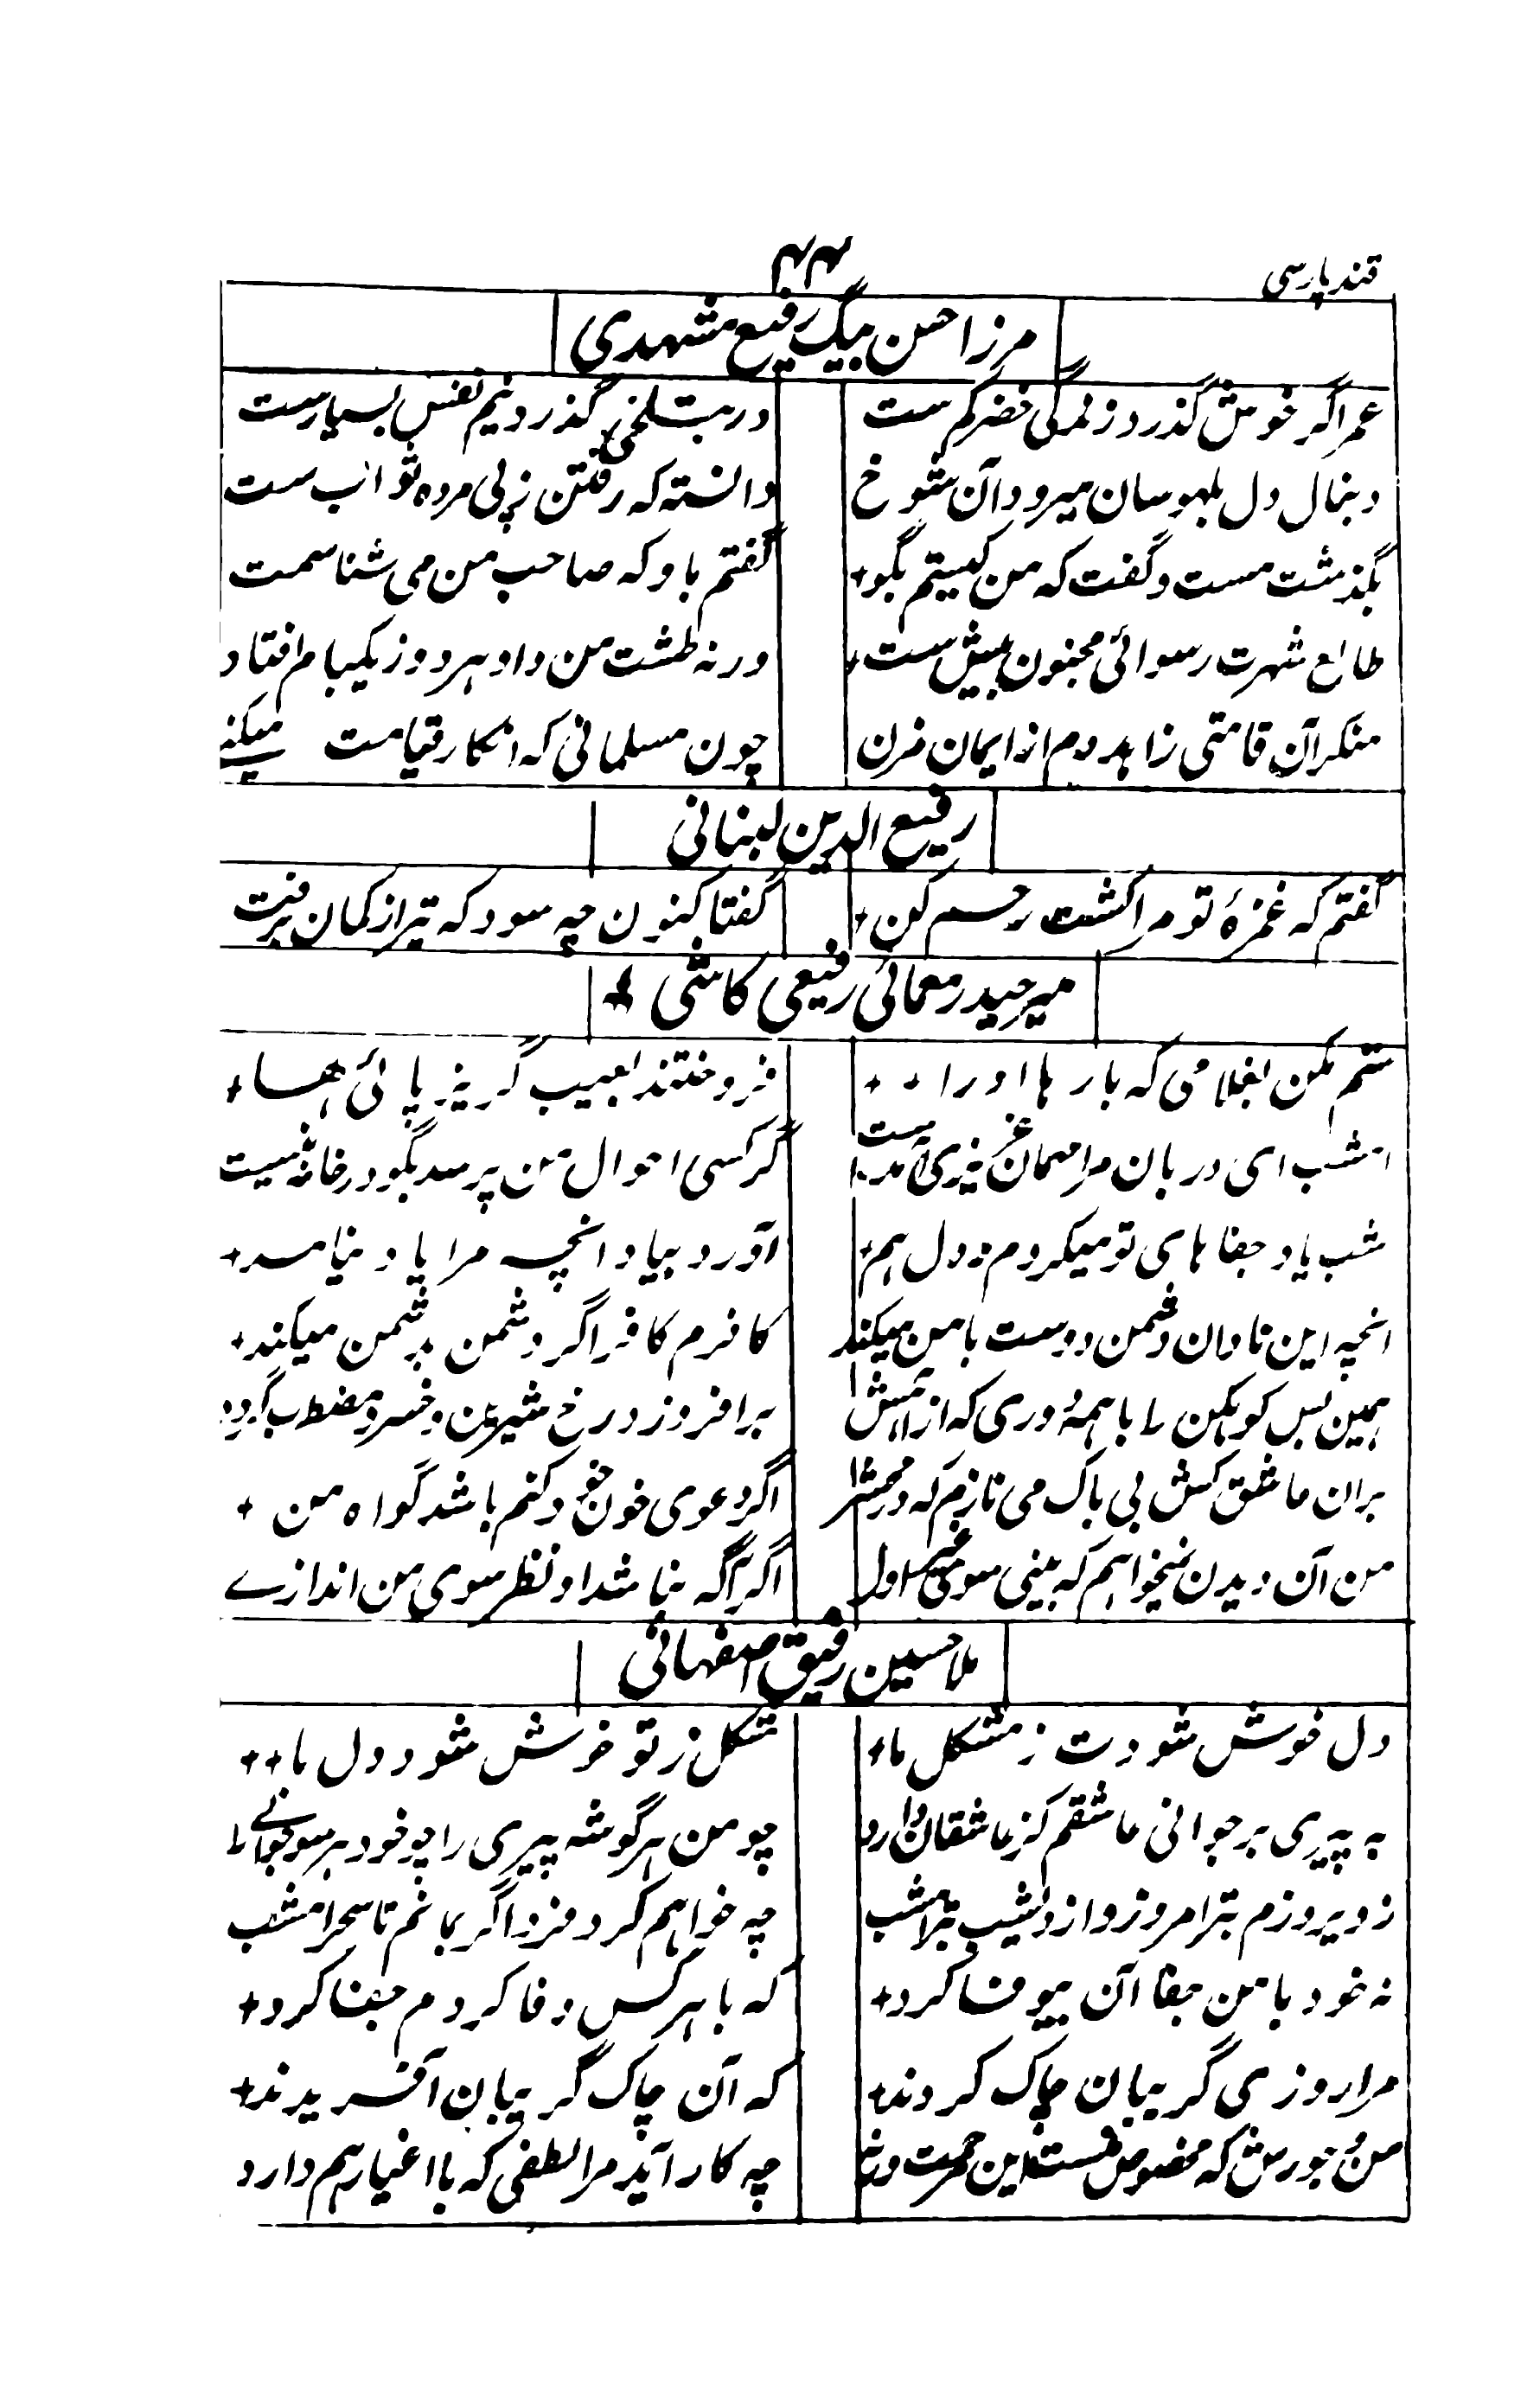 قند پارسی
۴۴
مرزا حسن بیگ رفیع مشهدی
عمر اگر خوش گذرد زندگی خضر کم ست
در بتلخی گذرد نیم نفس بسیارست
دنبال دل بلهوسان میرود آن شوخ
دانسته که رفتن ز پی مرده ثواب ست
بگذشت مست و گفت که من کیستم بگو
گفتم باو که صاحب من می شناسمت
طالع شهرت رسوائی مجنون بیش ست
ورنه طشت من و او هر دو ز یکبام افتاد
منکر آن قامتی زاهد دم از ایمان مزن
چون مسلمانی که انکار قیامت میکند
رفیع الدین لبنانی
گفتم که غمزهٔ تو مرا کشت رحم کن
گفتا کنون چه سود که تیر از کمان برفت
میر حیدر معمائی رفیعی کاشی
ستم بکن بغلامی که بارها او را
فروختند بعیب گریز پائی ها
امشب ای دربان مرا مهمان عزیزی آمدست
گر کسی احوال من پرسد بگو در خانه نیست
شب یاد جفاهای تو میکردم و دل هم
آورد بیاد انچه مرا یاد نیامد
انچه این نادان دشمن دوست با من میکند
کافرم کافر اگر دشمن بدشمن میکند
همین بس کوهکن را با همه دوری که از آهش
برافروزد رخ شیرین و خسرو مضطرب گردد
بران عاشق کش بی باک می نازم که در محشر
اگر دعوی خون خود کنم باشد گواه من
من آن دیدن نمیخواهم که بینی سوی غیر اول
اگر آگه نباشد او نظر سوی من اندازے
ملا حسین رفیق اصفهانی
دل خوش شودت ز مشکل ما
مشکل ز تو خوش شود دل ما
به پیری بر جوانی عاشقم کز عاشقان دارد
چو من هر گوشه پیری را چو خود هر سو جوانے را
ز دیروزم بتر امروز و از دیشب بتر امشب
چه خواهم کرد فردا گر بمانم تا سحر امشب
نه خود با من جفا آن بیوفا کرد
که با هر کس وفا کردم جفا کرد
مرا روزی گریبان چاک کردند
که آن چاک گریبان آفریدند
من و جورش که مخصوص منست این مرحمت ورنه
چه کار آید مرا لطفی که با اغیار هم دارد